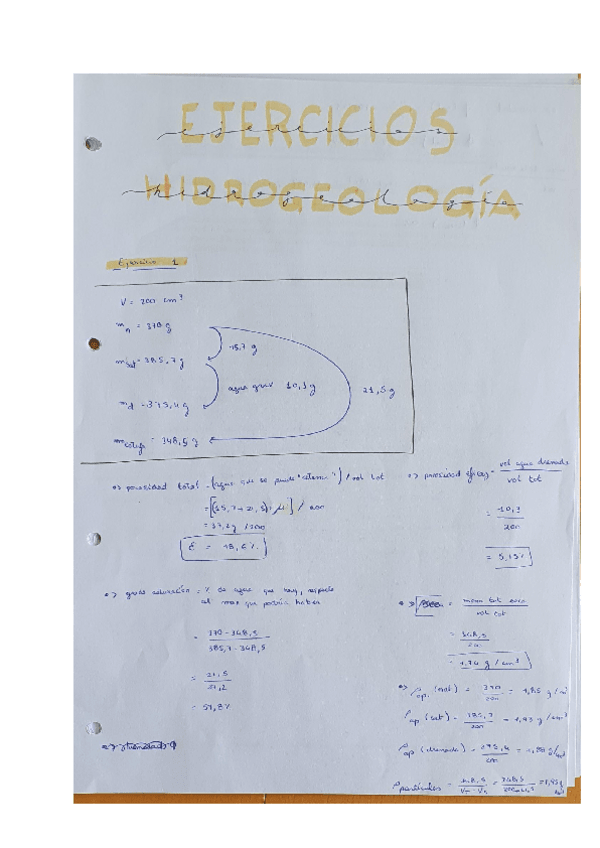 EJERCICIOS
ejercicios
HIDROGEOLOGÍA
hidrogeología
Ejercicio 1
V = 200 cm³
mₙ = 370 g
= 385,7 g
15,7 g
agua grav 10,3 g
21,5 g
m_d = 375,4 g
= 348,5 g
=> porosidad total = (agua que se puede "obtener") / vol tot
= [(15,7 + 21,5) · ] / 200
= 37,2 g / 200
ε = 18,6 %
=> porosidad eficaz = vol agua drenada / vol tot
= 10,3 / 200
= 5,15 %
=> grado saturación = % de agua que hay, respecto
al max que podría haber
= 370 - 348,5 / 385,7 - 348,5
= 21,5 / 37,2
= 57,8 %
= masa tot seca / vol tot
= 348,5 / 200
= 1,74 g / cm³
=> ρ ap. (nat) = 370 / 200 = 1,85 g /
ρ ap (sat) = 385,7 / 200 = 1,93 g / cm³
ρ ap (drenada) = 375,4 / 200 = 1,88 g/cm³
ρ partículas = 348,5